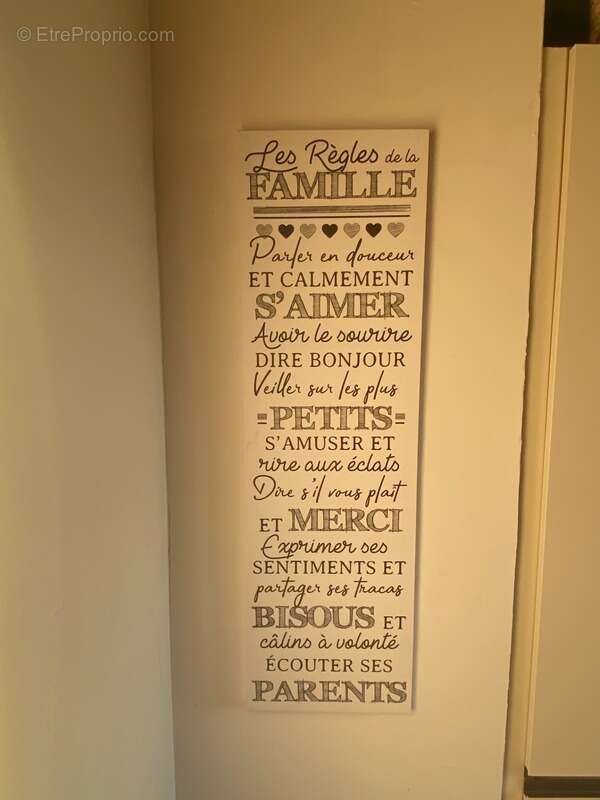 © EtreProprio.com
Les Règles de la
FAMILLE
Parler en douceur
ET CALMEMENT
S'AIMER
Avoir le sourire
DIRE BONJOUR
Veiller sur les plus
=PETITS=
S'AMUSER ET
rire aux éclats
Dire s'il vous plait
ET MERCI
Exprimer ses
SENTIMENTS ET
partager ses tracas
BISOUS ET
câlins à volonté
ÉCOUTER SES
PARENTS